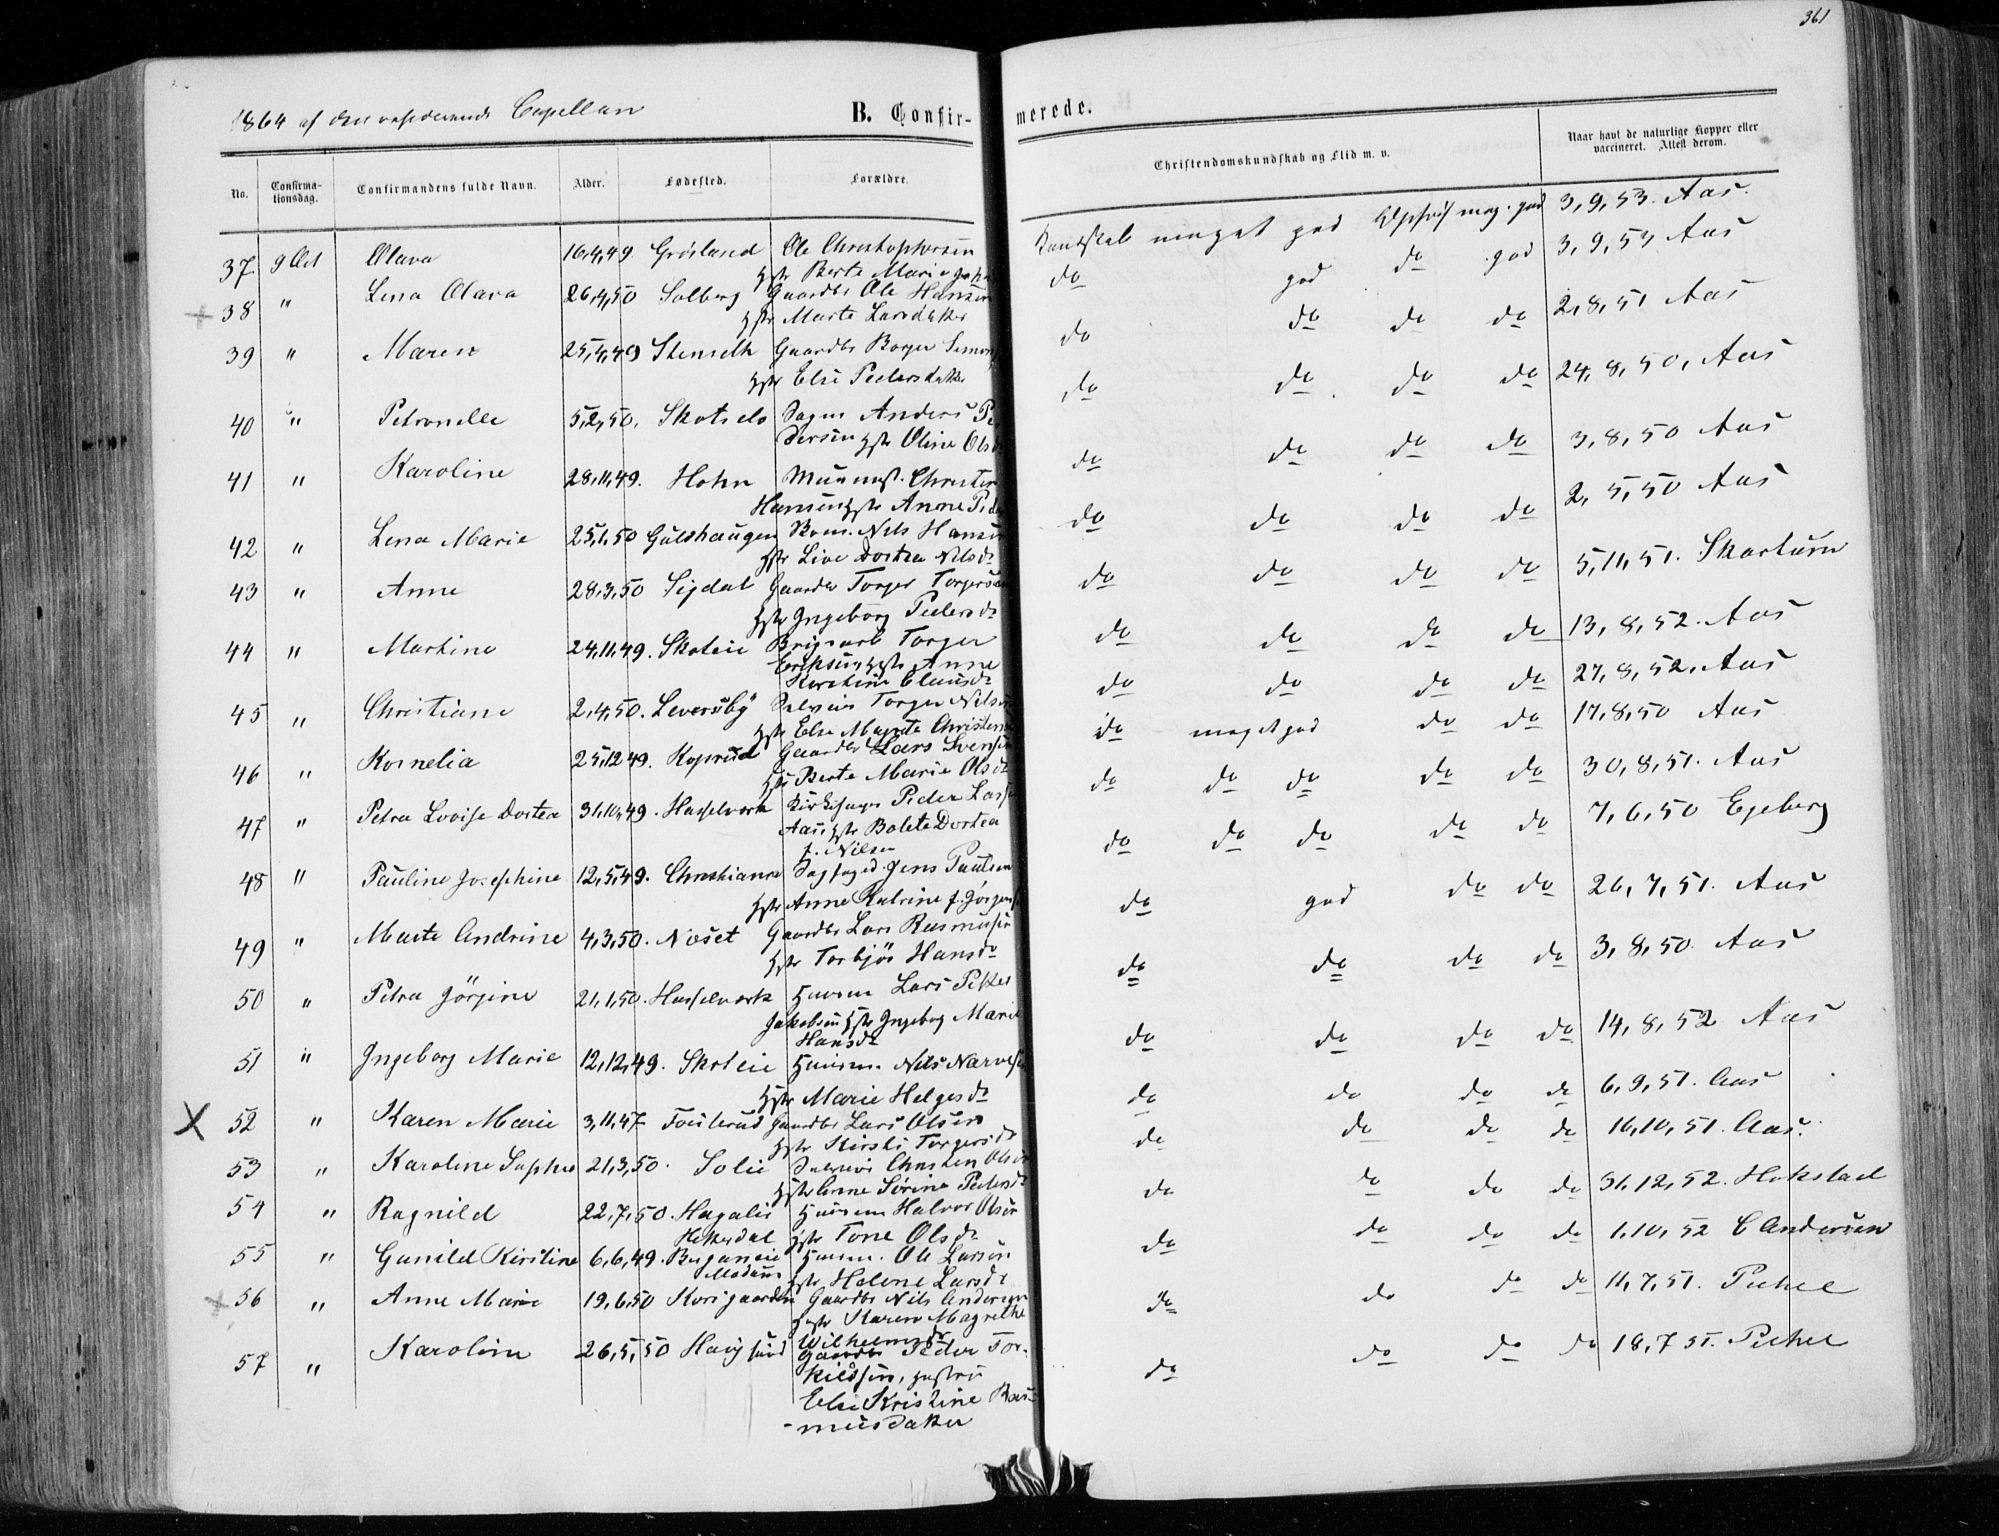 361
1864 af den residerende Capellan
B. Confir-merede.
No. Confirma-tionsdag. Confirmandens fulde Navn. Alder. Fødested. Forældre. Christendomskundskab og Flid m. v. Naar havt de naturlige Kopper eller vaccineret. Attest derom.
37 9 Oct Olava 16,4,49 Grösland Ole Christophersen Kundskab meget god Opførs meg. god 3,9,53. Aas.
Hstr Berte Marie
38 " Lena Olava 26,4,50 Solberg Gaardbr Ole Hansen do god do god 3,9,53 Aas
Hstr Marte Larsdatter
39 " Maren 25,4,49 Stenseth Gaardbr Borger Simons do do do do 2,8,51 Aas
Hstr Else Pedersdatter
40 " Petronelle 5,2,50. Skotselv Anders Pe do do do do 24,8,50, Aas
dersen Hstr Oline Olsd
41 " Karoline 28,11,49. Hohn Christen do do do do 3,8,50 Aas
Hansen Hstr Anne Peder
42 " Lena Marie 25,1,50 Gulshaugen Nils Hansen do do do do 2,5,50 Aas
Hstr Live Dortea Nilsdr
43 " Anne 28,3,50 Sigdal Gaardbr Torger Torgersen do do do do 5,11,51. Skartum
Hstr Ingeborg Pedersdr
44 " Martine 24,11,49. Skoteie Torger do do do do 13,8,52. Aas
Eriksen Hstr Anne
Kirstine Clausdr
45 " Christiane 2,4,50. Leversby Torger Nilsen do do do do 27,8,52, Aas
Hstr Else Marte Christens
46 " Kornelia 25,12,49. Koprud Gaardbr Lars Svensen do meget god do do 17,8,50 Aas
Hstr Berte Marie Olsdr
47 " Petra Lovise Dortea 31,10,49. Hasselverk Kirkesanger Peder Larsen do do do do do 30,8,51. Aas
Aas, Hstr Bolete Dortea
f. Nilsen
48 " Pauline Josephine 12,5,49. Christiania Jens Paulsen do do do do do 7,6,50 Egeberg
Hstr Anne Katrine f. Jørgens
49 " Marte Andrine 4,3,50. Nøset Gaardbr Lars Rasmusen do god do do 26,7,51. Aas
Hstr Torbjør Hansdr
50 " Petra Jörgine 21,1,50. Hasselverk Huusm Lars Peter do do do do 3,8,50. Aas
Jakobsen Hstr Ingeborg Marie
Hansdr
51 " Ingeborg Marie 12,12,49. Skoteie Huusm. Nils Narvesen do do do do 14,8,52 Aas
Hstr Marie Helgesdr
X 52 " Karen Marie 3,11,47 Gaardbr Lars Olsen do do do do 6,9,51. Aas
Hstr Kirsti Torgersdr
53 " Karoline Sophie 21,3,50. Solie Christen Olsen do do do do 16,10,51. Aas.
Hstr Anne Sørine Pedersdr
54 " Ragnild 22,7,50. Hagalie Huusm Halvor Olsen do do do do 31,12,52. Hokstad
Hstr Tone Olsdr
55 " Gunild Kirstine 6,6,49. Huusm. Ole Larsen do do do do 1,10,52 C Andersen
Modum Hstr Helene Larsdr
56 " Anne Marie 19,6,50 Korsgaarden Gaardbr Nils Andersen do do do do 11,7,51. Pihel
Hstr Karen Magrethe
Wilhelmsdr
57 " Karoline 26,5,50 Haugsund Gaardbr Peder Tor- do do do do 18,7 51. Pihel
kildsen, Hustru
Else Kristine Ras-
musdatter